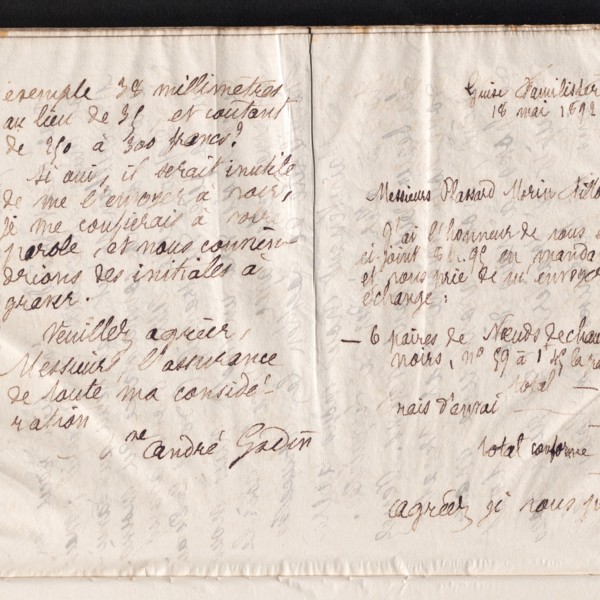 exemple 38 millimètres
au lieu de 35 et coûtant
de 250 à 300 francs?
Si oui, il serait inutile
de me l'envoyer à voir,
je me confierais à votre
parole, et nous convien-
drions des initiales à
graver.
Veuillez agréer,
Messieurs, l'assurance
de toute ma considé-
ration
Vve André Godin
Guise Familistère
18 mai 1892
Messieurs Plassard Morin
J'ai l'honneur de vous
ci-joint en manda
et vous prie de m'envoyer
échange:
— 6 paires de Nœuds de chau
noirs, n° 59 à 1f45 la
total
Frais d'envoi
total conforme
agréez je vous p